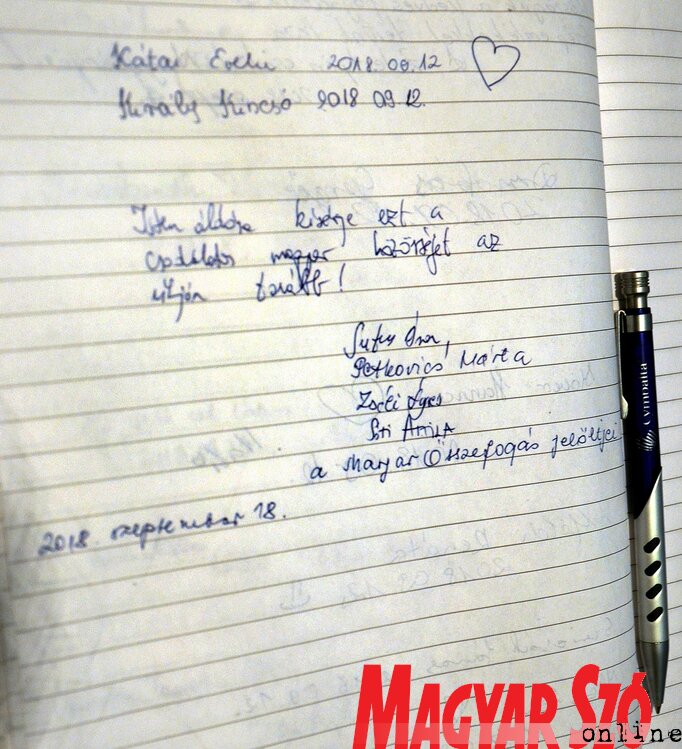 Kátai Evelin 2018.09.12
Király Kincső 2018 09 12.
Isten áldása kísérje ezt a
csodálatos magyar közösséget az
útján tovább!
Petkovics Márta
Attila
a Magyar Összefogás jelöltjei
2018. szeptember 18.
Cymbalta
MAGYAR SZÓ
online